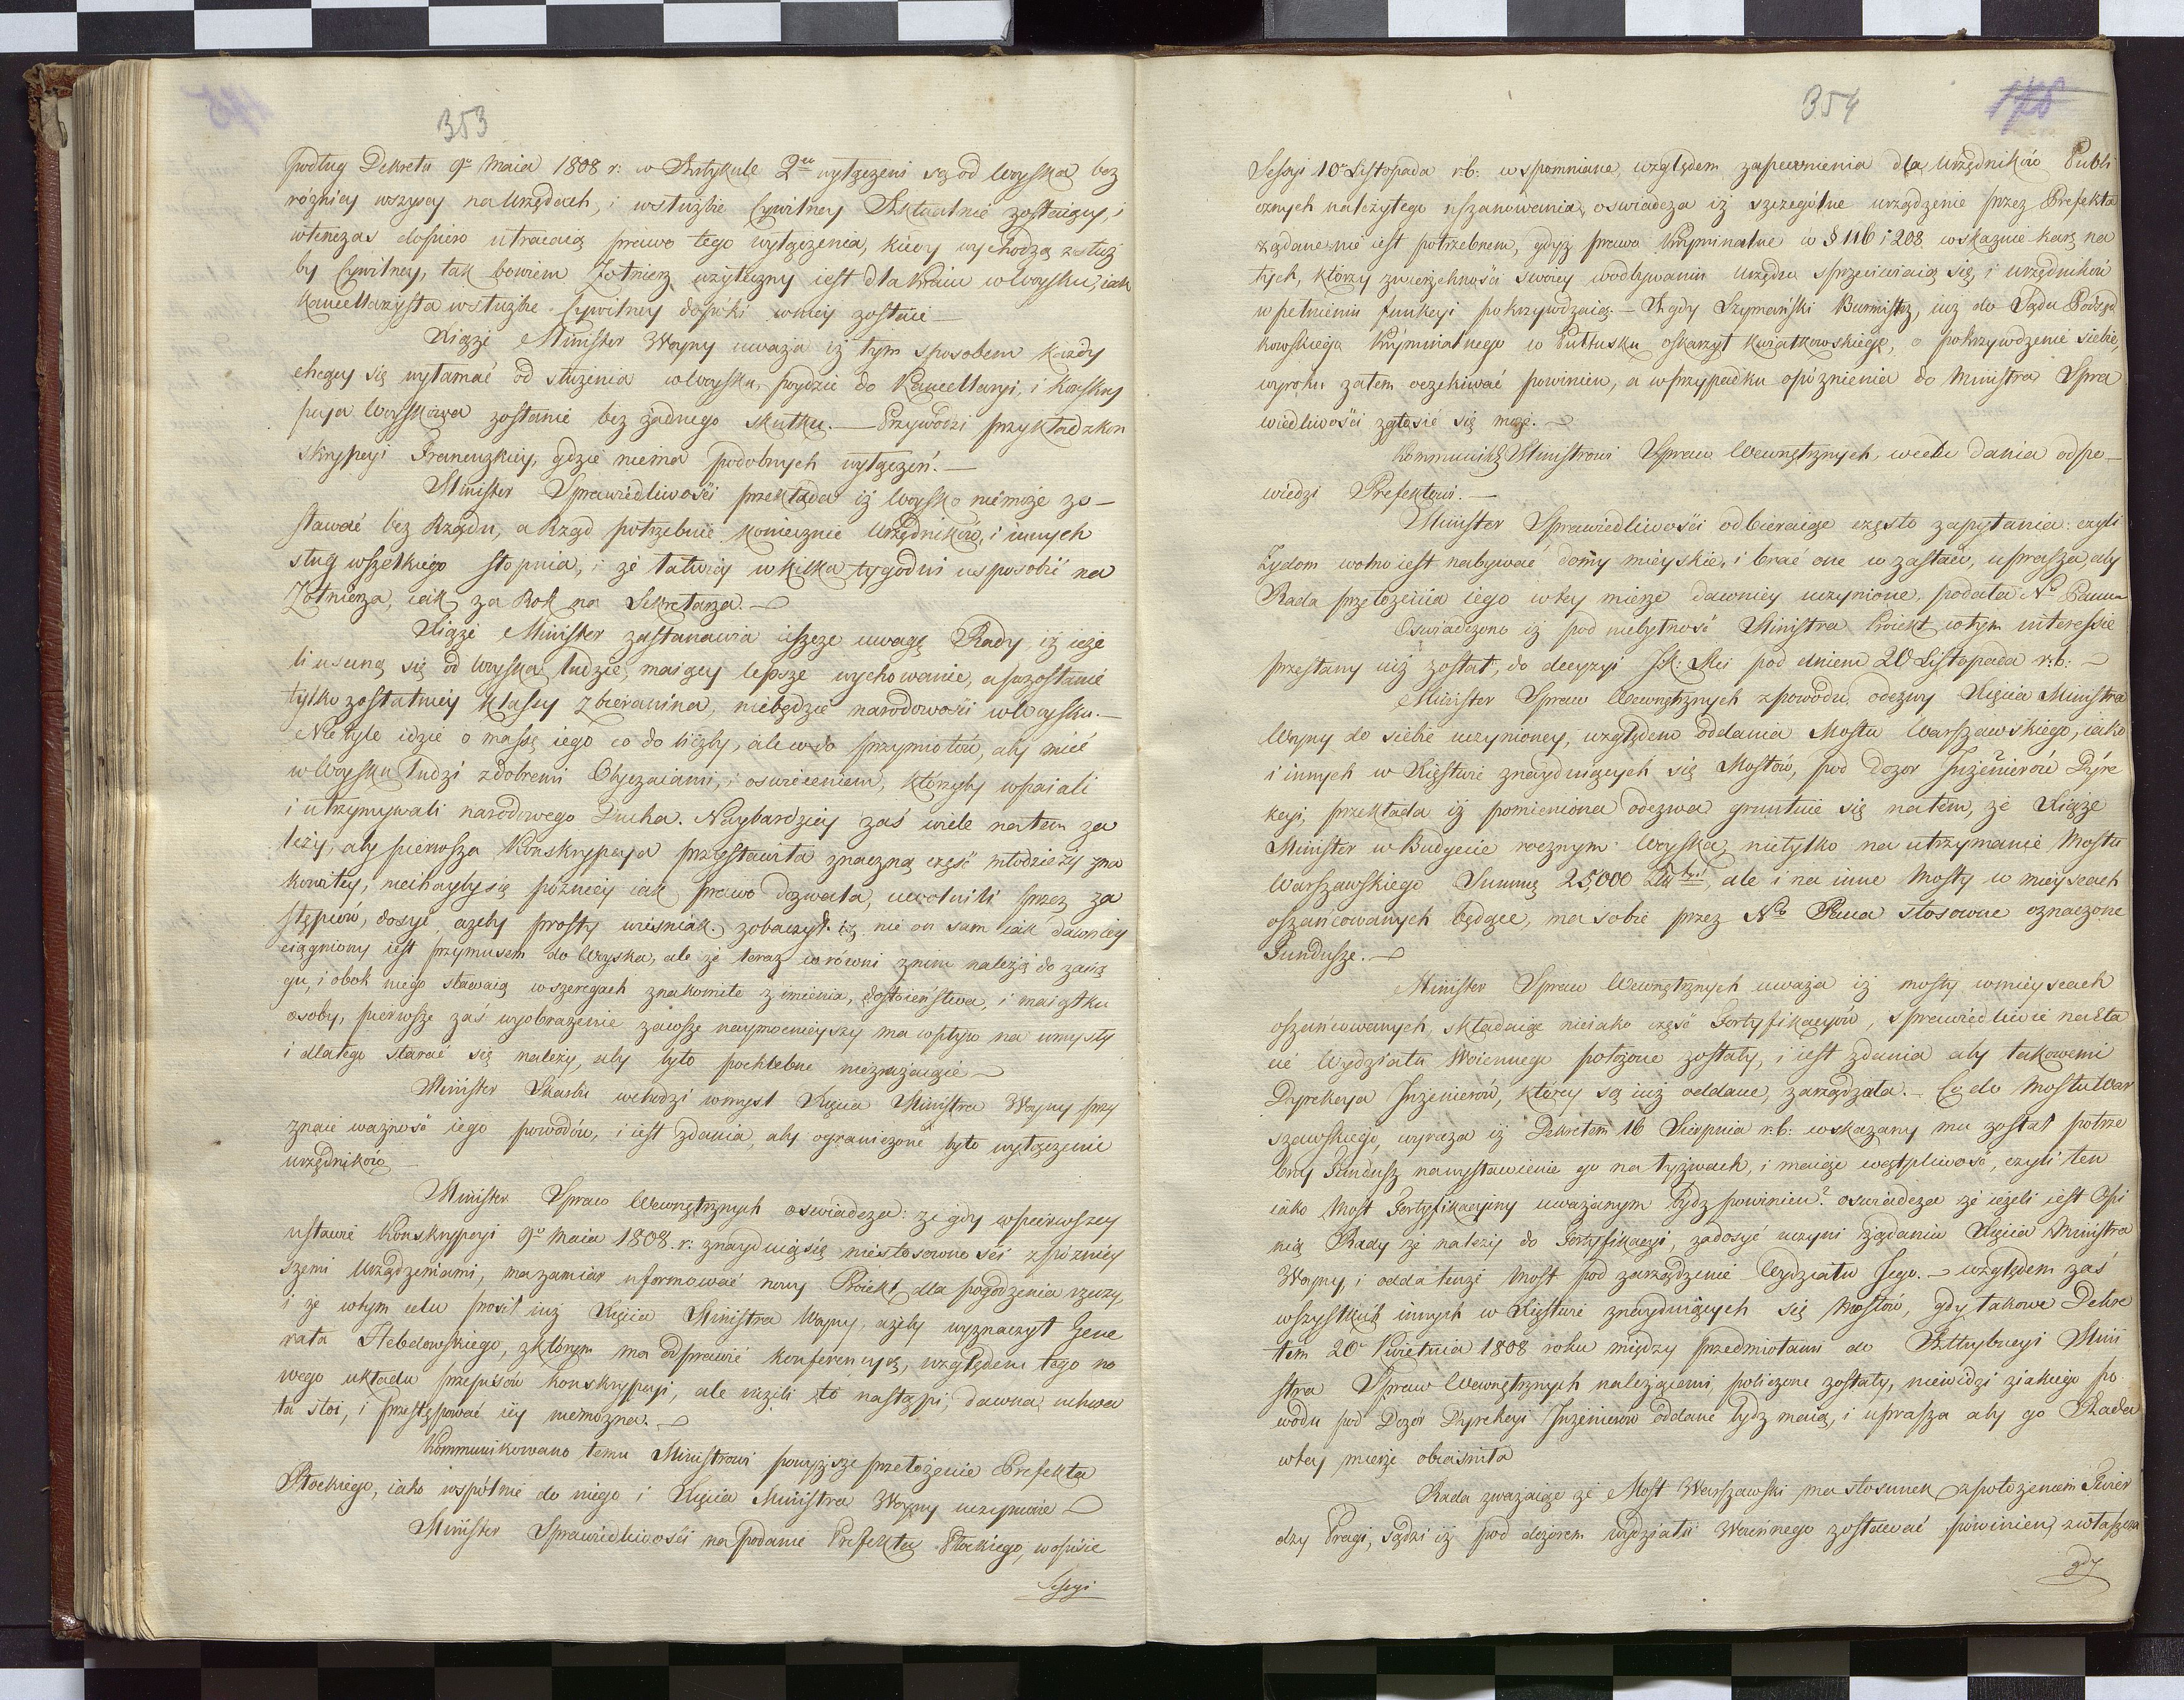 353
podług Dekretu 9º Maia 1808 r: w Artykule 2im wyłączeni są od Woyska bez
różnicy wszyscy na Urzędach, i w służbie Cywilney Aktualnie zostaiący, i
wtenczas dopiero utracaią prawo tego wyłączenia, kiedy wychodzą z służ
by Cywilney, tak bowiem Żołnierz użyteczny iest dla Kraiu w Woysku, iak
Kancellarzysta w służbie Cywilney dopóki w niey zostaie —
Xiążę Minister Woyny uważa iż tym sposobem każdy
chcący się wyłamać od służenia w Woysku, poydzie do Kancellaryi, i Konskry
pcya Woyskowa zostanie bez żadnego skutku. — Przywodzi przykład z Kon
skrypcyi Francuzkiey, gdzie niema podobnych wyłączeń. —
Minister Sprawiedliwości przekłada iż Woysko nie może zo-
stawać bez Rządu, a Rząd potrzebuie koniecznie Urzędników, i innych
sług wszelkiego stopnia, i że łatwiey w kilka tygodni usposobić na
Żołnierza, iak za Rok na Sekretarza. —
Xiążę Minister zastanawia ieszcze uwagę Rady, iż ieże
li usuną się od Woyska ludzie, maiący lepsze wychowanie, a pozostanie
tylko z ostatniey klassy zbieranina, niebędzie narodowości w Woysku. —
Nie tyle idzie o massę iego co do liczby, ale co do przymiotów, aby mieć
w Woysku ludzi z dobremi Obyczaiami, i oswieceniem, którzyby wpaiali
i utrzymywali narodowego Ducha. Naybardziey zaś wiele na tem za
leży, aby pierwsza Konskrypcya przystawiła znaczną część młodzieży zna
komitey, niechayby się późniey iak prawo dozwala, uwolnili przez za
stępców, dosyć ażeby prosty wieśniak zobaczył iż nie on sam iak dawniey
ciągniony iest przymusem do Woyska, ale że teraz w równi z nim należą do zacią
gu, i obok niego stawaią w szeregach znakomite z imienia, dostoieństwa, i maiątku
osoby, pierwsze zaś wyobrażenie zawsze naymocnieyszy ma wpływ na umysły
i dlatego starać się należy, aby było pochlebne niezrażaiące —
Minister Skarbu wchodzi w myśl Xięcia Ministra Woyny przy
znaie ważność iego powodów, i iest zdania, aby ograniczone było wyłączenie
urzędników —
Minister Spraw Wewnętrznych oswiadcza: że gdy w pierwszey
ustawie Konskrypcyi 9º Maia 1808. r: znayduią się niestosowności z późniey
szemi Urządzeniami, ma zamiar uformować nowy Proiekt, dla pogodzenia rzeczy
i że w tym celu prosił iuż Xięcia Ministra Woyny, ażeby wyznaczył Gene
rała Hebdowskiego, z którym ma odprawić konferencyą, względem tego no
wego układu przepisów konskrypcyi, ale nieżeli to nastąpi, dawna uchwa
ła stoi, i przestępować iey niemożna. —
Kommunikowano temu Ministrowi powyższe przełożenie Prefekta
Płockiego, iako wspólnie do niego i Xięcia Ministra Woyny uczynione —
Minister Sprawiedliwości na podanie Prefekta Płockiego, w opisie
Sessyi
354
178
Sessyi 10º Listopada r:b: wspomniane, względem zapewnienia dla Urzędników Publi
cznych należytego uszanowania, oswiadcza iż szczególne urządzenie przez Prefekta
żądane nie iest potrzebnem, gdyż prawa Kryminalne w § 116 i 208 wskazuie karę na
tych, którzy zwierzchności swoiey w odbywaniu Urzędu sprzeciwiaią się, i urzędników
w pełnieniu funkcyi pokrzywdzaią. — A gdy Szymański Burmistrz, iuż do Sądu Podsęd
kowskiego Kryminalnego w Pułtusku oskarżył Kwiatkowskiego, o pokrzywdzenie siebie,
wyroku zatem oczekiwać powinien, a w przypadku opóznienia do Ministra Spra
wiedliwości zgłosić się może. —
Kommunik: Ministrowi Spraw Wewnętrznych, w celu dania odpo-
wiedzi Prefektowi. —
Minister Sprawiedliwości odbieraiąc często zapytania: czyli
Żydom wolno iest nabywać domy mieyskie, i brać one w zastaw, uprasza, aby
Rada przełożenia iego w tey mierze dawniey uczynione, podała Nu Panu
Oswiadczono iż pod niebytność Ministra Proiekt w tym interessie
przesłany iuż został, do decyzyi JK: Mci pod dniem 20 Listopada r:b: —
Minister Spraw Wewnętrznych z powodu odezwy Xięcia Ministra
Woyny do siebie uczynioney, względem oddania Mostu Warszawskiego, iako
i innych w Xięstwie znayduiących się Mostów, pod dozor Inżenierów Dyre
kcyi, przekłada iż pomieniona odezwa gruntuie się na tem, że Xiąże
Minister w Budżecie rocznym Woyska, nietylko na utrzymanie Mostu
Warszawskiego Summę 25,000 ale i na inne Mosty w mieyscach
oszańcowanych będące, ma sobie przez Ngo Pana stosowne oznaczone
Fundusze. —
Minister Spraw Wewnętrznych uważa iż mosty w mieyscach
oszańcowanych, składaiąc nieiako część Fortyfikacyów, sprawiedliwie na Eta
cie Wydziału Woiennego położone zostały, i iest zdania aby takowemi
Dyrekcya Inżenierów, którey są iuż oddane, zarządzała. — Co do Mostu War
szawskiego, wyraża iż Dekretem 16 Sierpnia r:b: wskazany mu został potrze
bny Fundusz na wystawienie go na łyżwach, i maiąc wątpliwość, czyli ten
iako Most Fortyfikacyiny uważanym bydz powinien? oswiadcza że ieżeli iest Opi
nią Rady że należy do Fortyfikacyi, zadosyć uczyni żądaniu Xięcia Ministra
Woyny, i odda tenże Most pod zarządzenie Wydziału Jego. — względem zaś
wszystkich innych w Xięstwie znayduiących się Mostów, gdy takowe Dekre
tem 20º Kwietnia 1808 roku między przedmiotami do Attrybucyi Mini
stra Spraw Wewnętrznych należącemi, policzone zostały, niewidzi z iakiego po
wodu pod Dozór Dyrekcyi Inżenierów oddane bydz maią, i uprasza aby go Rada
w tey mierze obiaśniła
Rada zważaiąc że Most Warszawski ma stosunek z położeniem Twier
dzy Pragi, sądzi iż pod dozorem wydziału Woiennego zostawać powinien, zwłaszcza
gdy